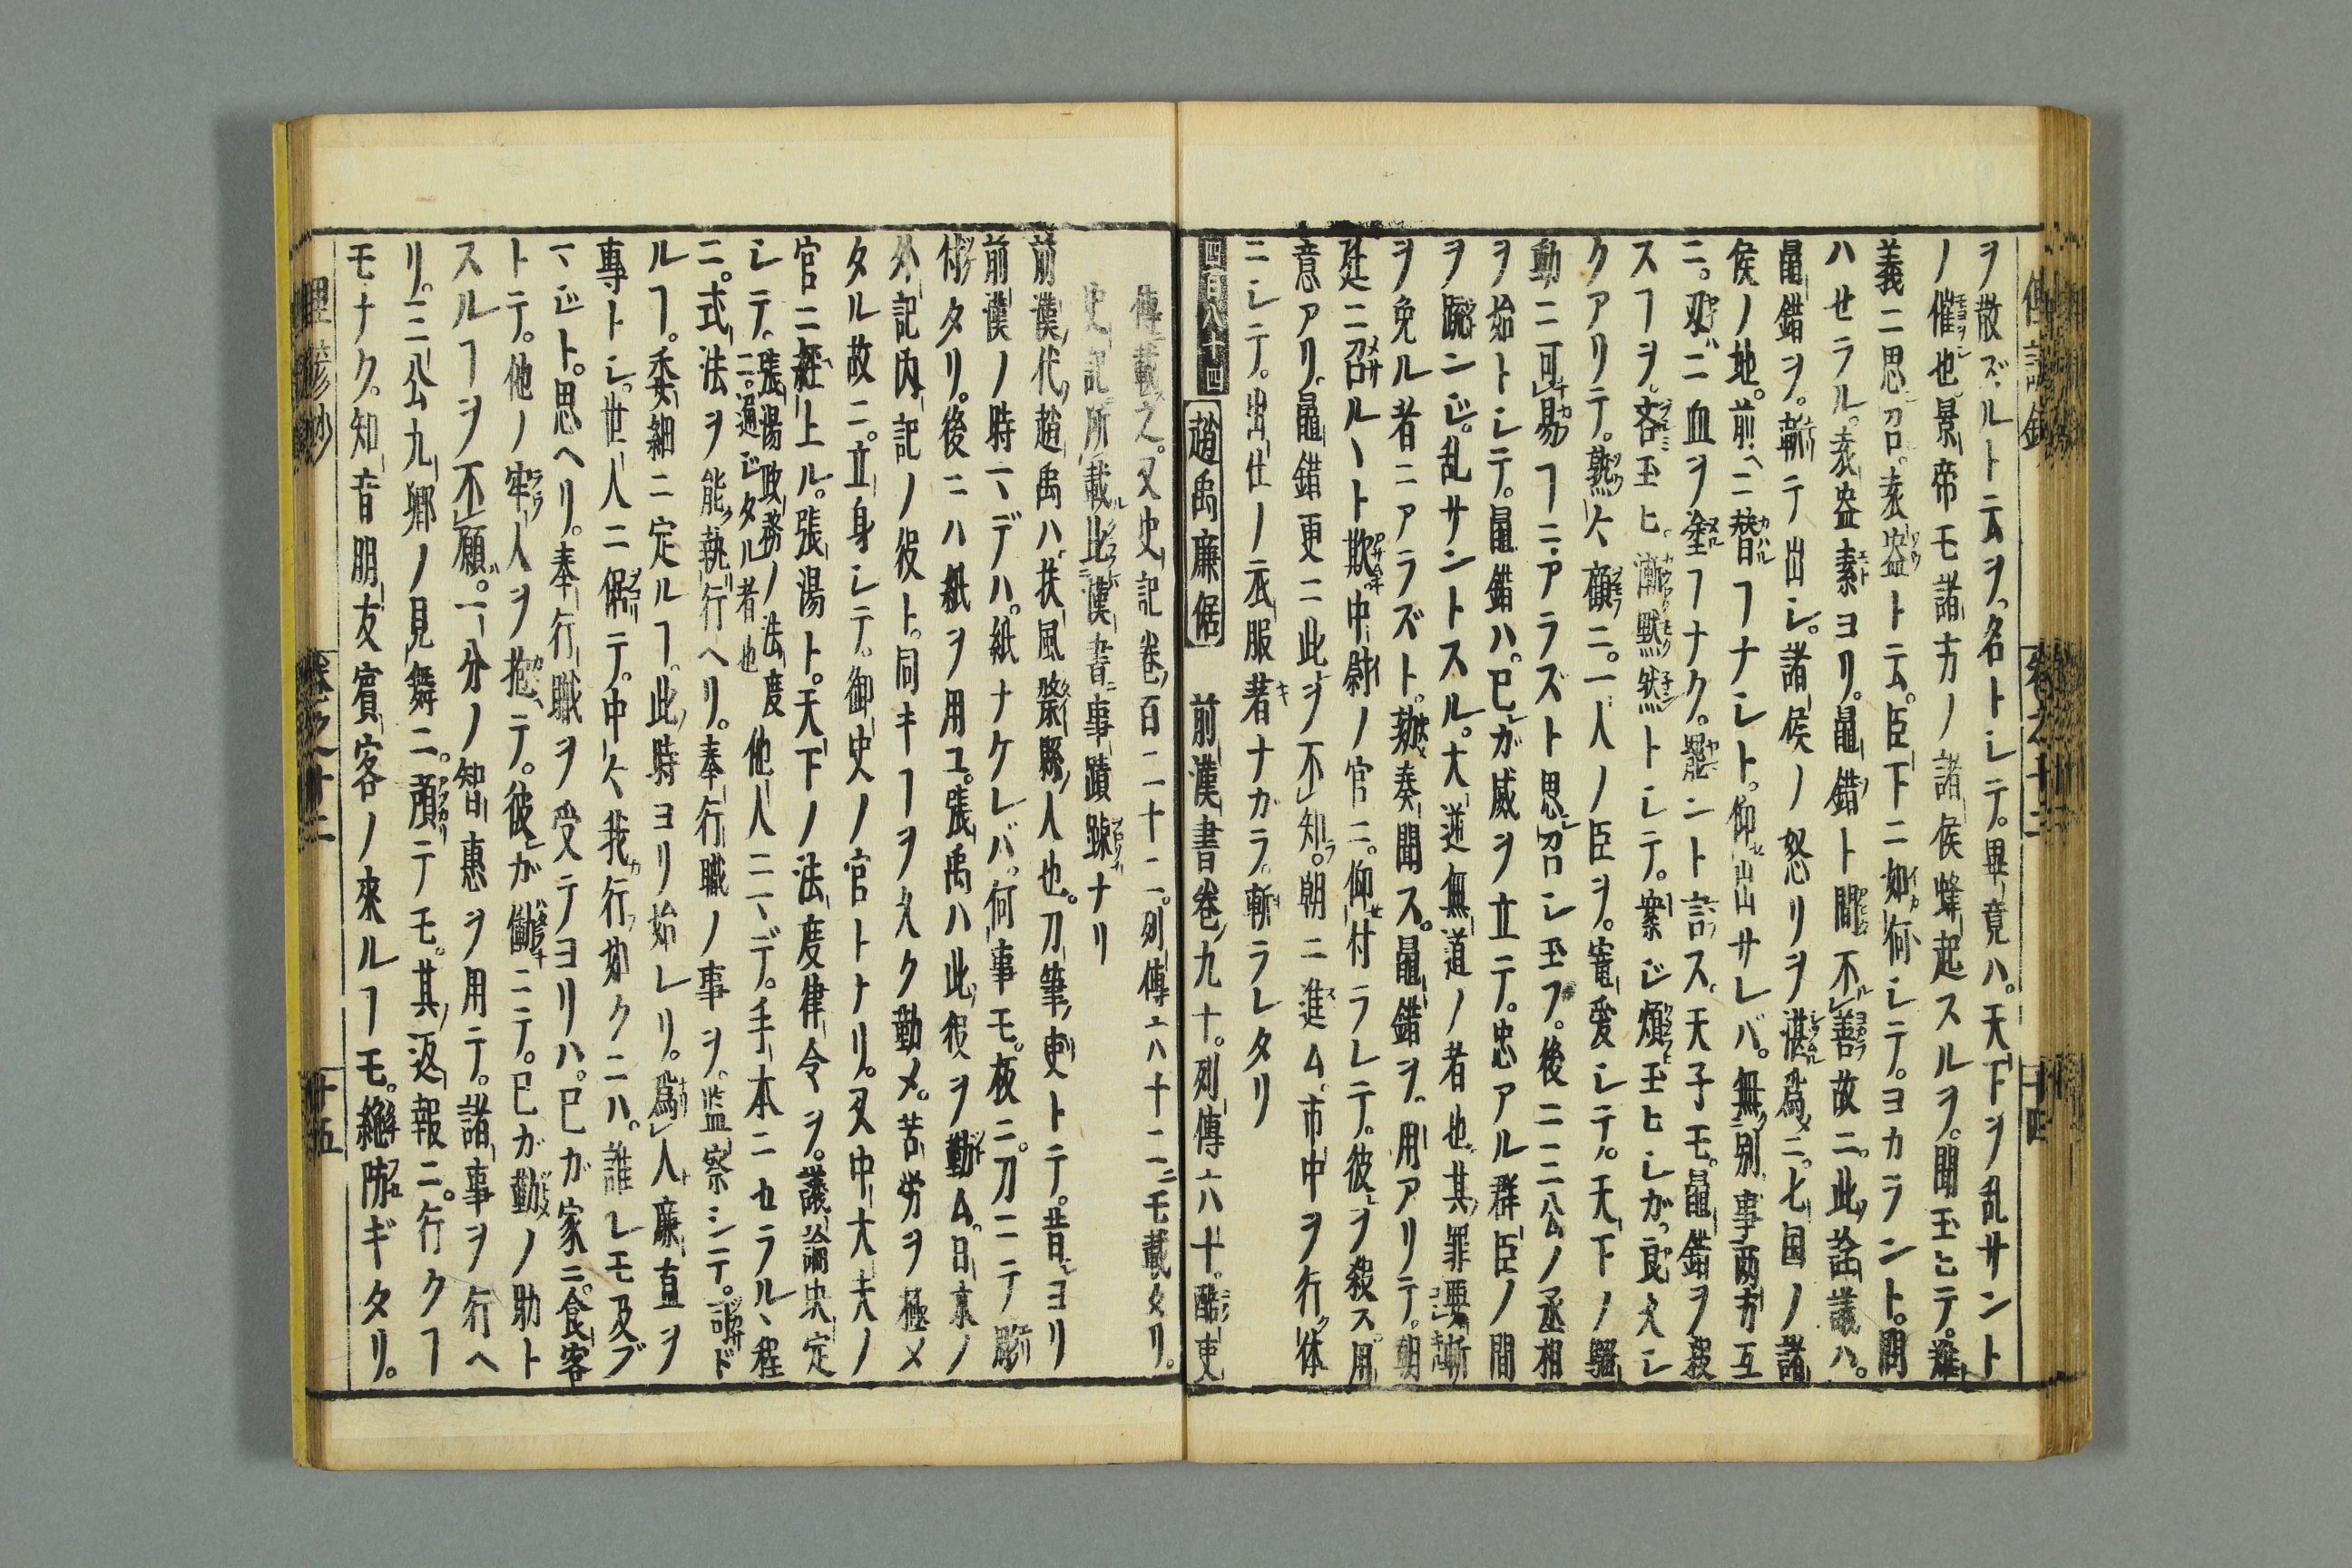 ヲ散ズルト云ヲ。名トシテ。畢竟ハ。天下ヲ乱サント
ノ催也。景帝モ諸方ノ諸侯蜂起スルヲ。聞玉ヒテ。難
義ニ思召。袁盎ト云。臣下ニ如何シテ。ヨカラント。問
ハセラル。袁盎素ヨリ。鼂錯ト間不善故ニ。此詮議ハ。
鼂錯ヲ。斬テ出シ。諸侯ノ怒リヲ湛爲ニ。七国ノ諸
侯ノ地。前ニ替フナシト。仰出サレバ。無別事両方互
ニ。刄ニ血ヲ塗フナク。罷ント言ス。天子モ。鼂錯ヲ殺
スフヲ。吝玉ヒ。漸黙然トシテ。案ジ煩玉ヒシガ。良久シ
クアリテ。熟〻顧ニ。一人ノ臣ヲ。寵愛シテ。天下ノ騒
動ニ可易フニアラズト思召シ玉フ。後ニ三公ノ丞相
ヲ始トシテ。鼂錯ハ。己ガ威ヲ立テ。忠アル群臣ノ間
ヲ踈ンジ。乱サントスル。大逆無道ノ者也。其罪要斬
ヲ免ル者ニアラズト。劾奏聞ス。鼂錯ヲ。用アリテ。朝
廷ニ召ルヽト欺。中尉ノ官ニ。仰付ラレテ。彼ヲ殺ス。用
意アリ。鼂錯更ニ此ヲ不知。朝ニ進ム。市中ヲ行体
ニシテ。出仕ノ衣服著ナガラ。斬ラレタリ
四百八十四 趙禹廉倨 前漢書巻九十。列傳六十。酷吏
傳載之。又史記巻百二十二。列傳六十二ニモ載タリ。
史記所載此漢書事蹟踈ナリ
前漢代趙禹ハ。扶風斄縣人也。刀筆吏トテ。昔ヨリ
前漢ノ時マデハ。紙ナケレバ。何事モ。板ニ。刀ニテ彫
付タリ。後ニハ紙ヲ用ユ。張禹ハ此役ヲ勤ム。日京ノ
外記内記ノ役ト。同キフヲ久ク勤メ。苦労ヲ極メ
タル故ニ。立身シテ。御史ノ官トナリ。又中大夫ノ
官ニ經上ル。張湯ト。天下ノ法度律令ヲ。議論决定
シテ。張湯政務ノ法度ニ。通ジタル者也 他人ニマデ。手本ニセラルヽ程
ニ。式法ヲ能執行ヘリ。奉行職ノ事ヲ。監察シテ。認ド
ルフ。委細ニ定ルフ。此時ヨリ始レリ。爲人廉直ヲ
專トシ。世人ニ倨テ。中〻我行如クニハ。誰レモ及ブ
マジト。思ヘリ。奉行職ヲ受テヨリハ。己ガ家ニ。食客
トテ。他ノ牢人ヲ抱テ。彼ガ働ニテ。己ガ勤ノ助ト
スルフヲ不願。一分ノ智惠ヲ用テ。諸事ヲ行ヘ
リ。三公九卿ノ見舞ニ。頑テモ。其返報ニ。行クフ
モナク。知音朋友賓客ノ來ルフモ。絶防ギタリ。
巻之十二
二十四
巻之十二
二十五